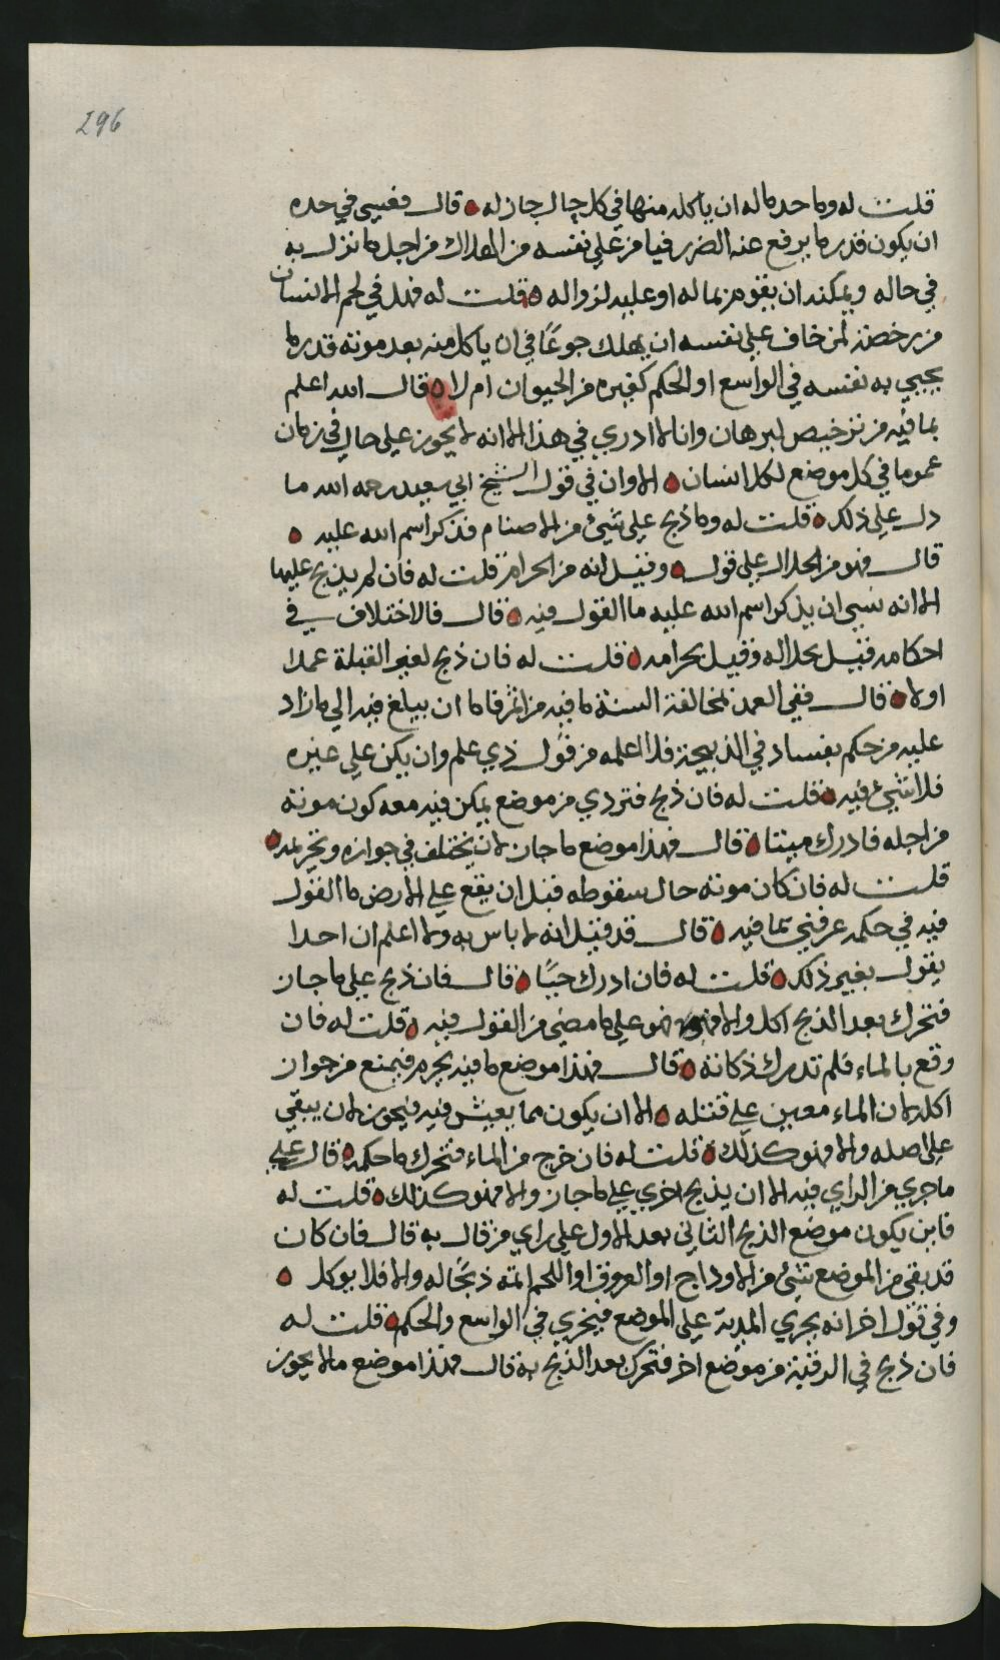 296
قلت له وما حد ما له ان ياكله منها في كل حال جاز له ه قال فعسى في حده
ان يكون قدر ما يرفع عنه الضرر فيامن على نفسه من الهلاك من اجل ما نزل به
في حاله ويمكنه ان يقوم بما له او عليه لزواله ه قلت له فهل في لحم الانسان
من رخصة لمن خاف على نفسه ان يهلك جوعًا في ان ياكل منه بعد موته قدر ما
يحيي به نفسه في الواسع او الحكم كغيره من الحيوان ام لا ه قال الله اعلم
بما فيه من ترخيص لبرهان وانا لا ادري في هذا الا انه لا يجوز على حال في زمان
عموما في كل موضع لكل انسان ه الا وان في قول الشيخ ابي سعيد رحمه الله ما
دل على ذلك ه قلت له وما ذبح على شيئ من الاصنام فذكر اسم الله عليه ه
قال فهو من الحلال على قول ه وقيل انه من الحرام قلت له فان لم يذبح عليها
الا انه نسي ان يذكر اسم الله عليه ما القول فيه ه قال فالاختلاف في
احكامه فقيل بحلاله وقيل بحرامه ه قلت له فان ذبح لغير القبلة عمدا
اولا ه قال ففي العمد لمخالفة السنة ما فيه من اثم فاما ان يبلغ فيه الي ما زاد
عليه من حكم بفساد في الذبيحة فلا اعلمه من قول ذي علم وان يكن على غيره
فلا شيئ فيه ه قلت له فان ذبح فتردي من موضع يمكن فيه معه كون موته
من اجله فادرك ميتا ه قال فهذا موضع ما جاز لان يختلف في جوازه وتحريمه ه
قلت له فان كان موته حال سقوطه قبل ان يقع على الارض ما القول
فيه في حكمه عرفني بما فيه ه قال قد قيل انه لا باس به ولا اعلم ان احدا
يقول بغير ذلك ه قلت له فان ادرك حيًا ه قال فان ذبح على ما جاز
فتحرك بعد الذبح اكل والا فهو على ما مضي من القول فيه ه قلت له فان
وقع بالماء فلم تدرك ذكاته ه قال فهذا موضع ما فيه يحرم فيمنع من جواز
اكله لان الماء معين على قتله ه الا ان يكون مما يعيش فيه فيجوز لان يبقي
على اصله والا فهو كذلك ه قلت له فان خرج من الماء فتحرك ما حكمه ه قال علي
ما جري من الراي فيه الا ان يذبح اخري على ما جاز والا فهو كذلك ه قلت له
فاين يكون موضع الذبح الثاني بعد الاول على راي من قال به قال فان كان
قد بقي من الموضع شيئ من الاوداج او العروق او اللحم اتمه ذبحًا له والا فلا يوكل ه
وفي قول اخر انه يجري المدية على الموضع فيجزي في الواسع والحكم ه قلت له
فان ذبح في الرقبة من موضع اخر فتحرك بعد الذبح به قال فهذا موضع ما لا يجوز